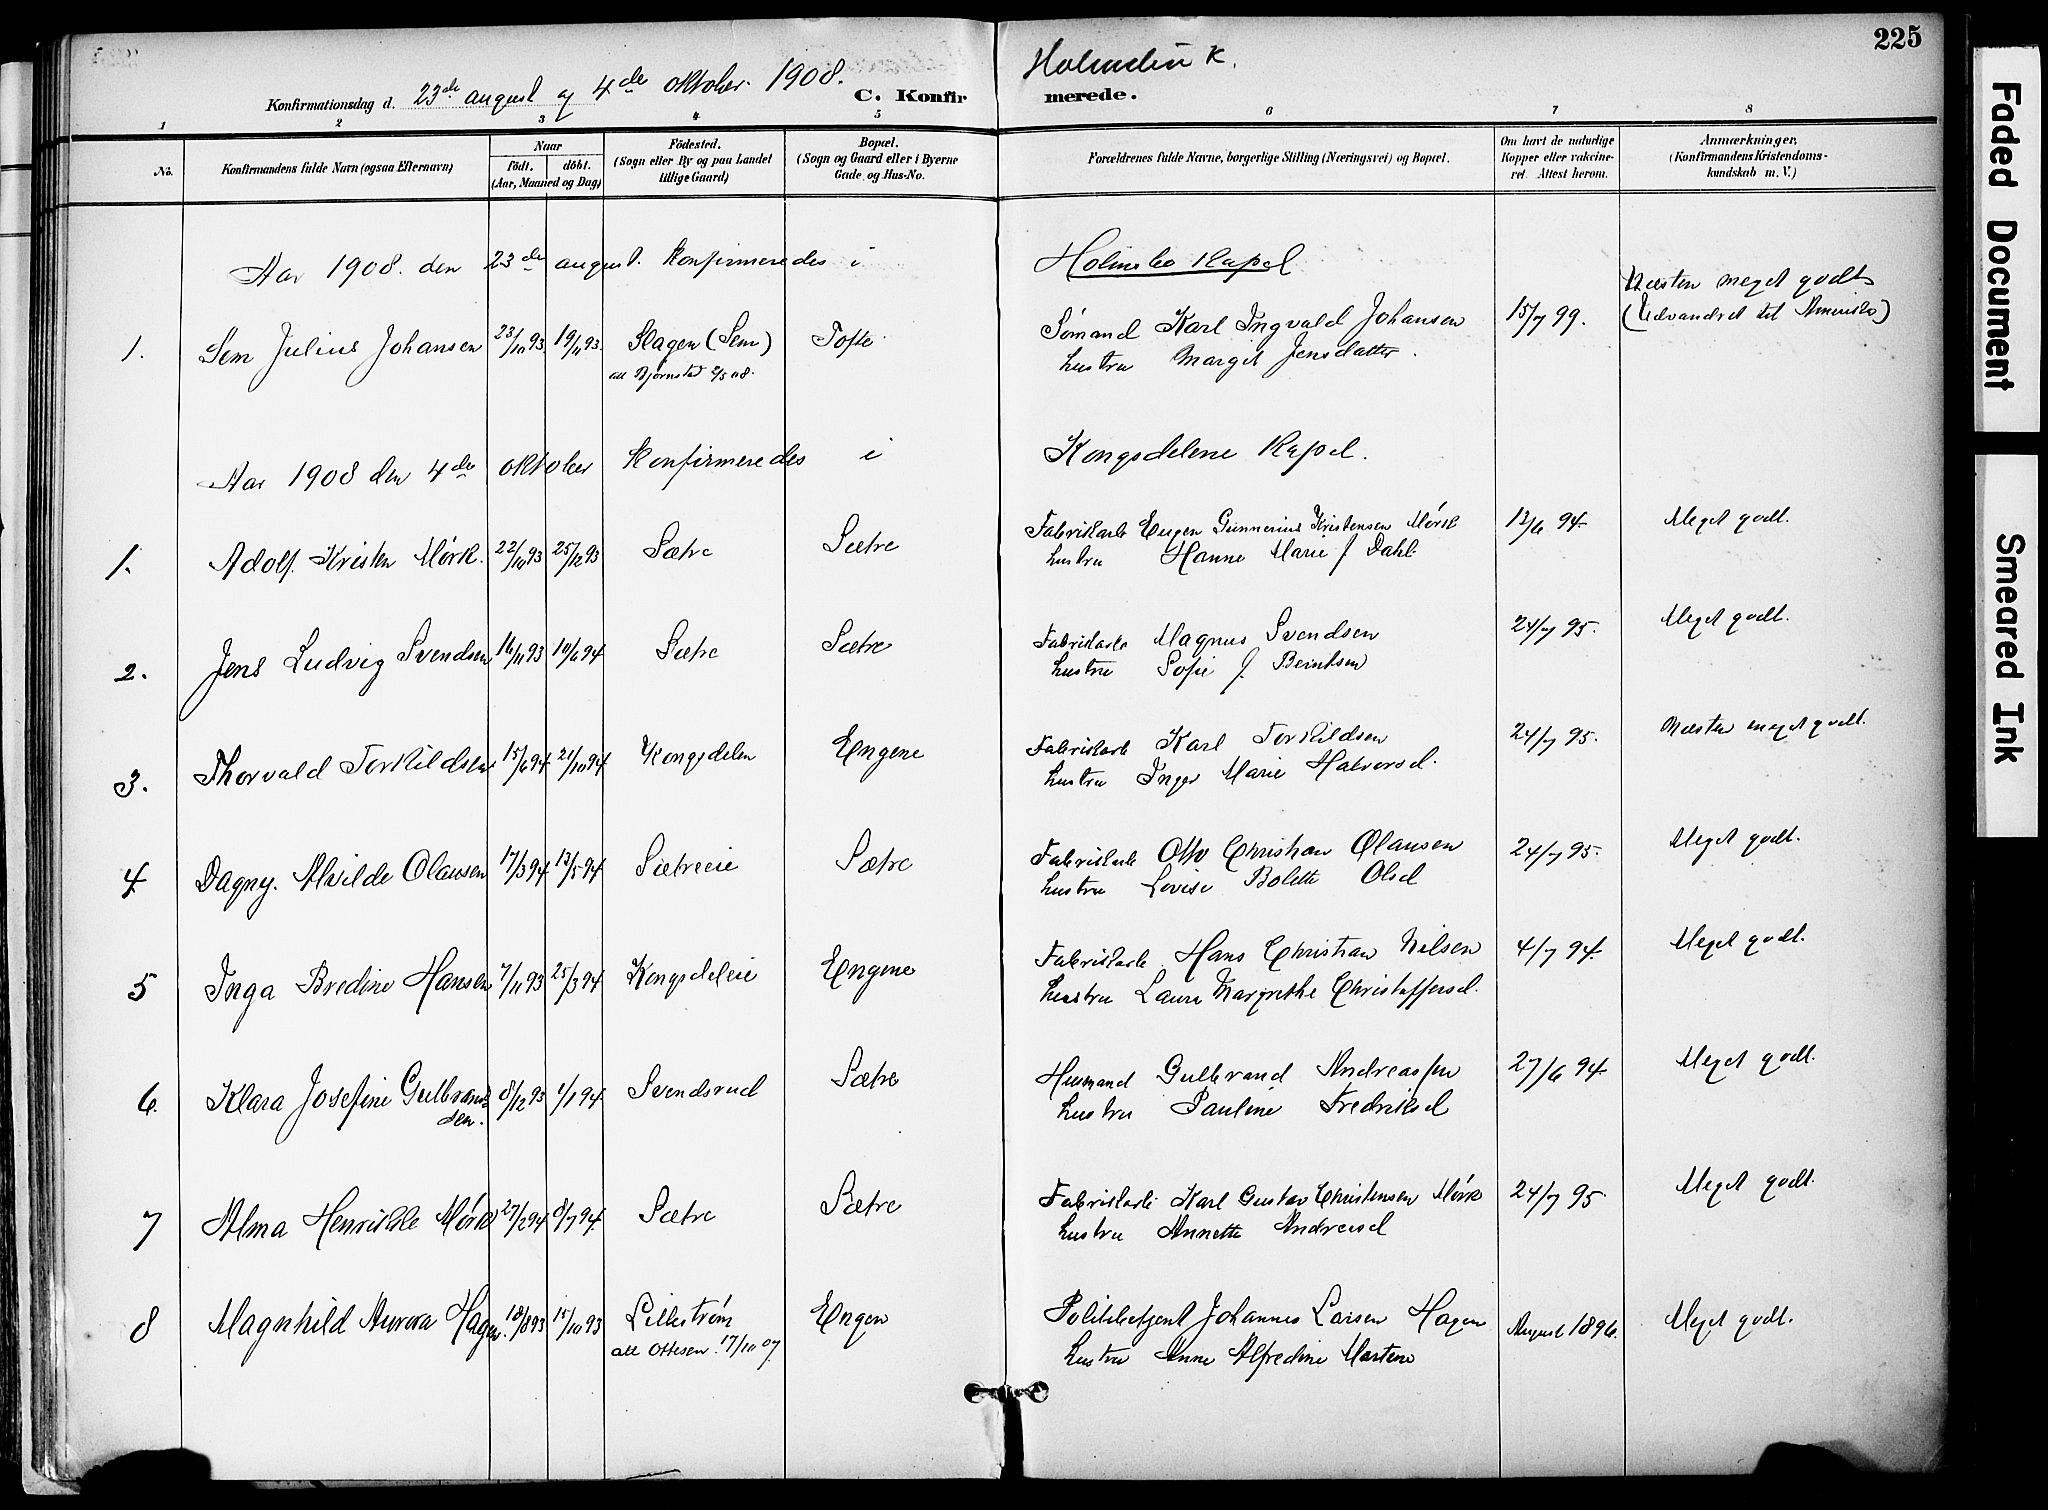 225
Konfirmationsdag d. 23de august og 4de oktober 1908.
C. Konfirmerede.
1 2 3 4 5 6 7 8
No.
Konfirmandens fulde Navn (ogsaa Efternavn)
Naar
Födt. döbt.
(Aar, Maaned og Dag)
Födested.
(Sogn eller By og paa Landet
tillige Gaard)
Bopæl.
(Sogn og Gaard eller i Byerne
Gade og Hus-No.
Forældrenes fulde Navne, borgerlige Stilling (Næringsvei) og Bopæl.
Om havt de naturlige
Kopper eller vaccine-
ret. Attest herom.
Anmærkninger,
(Konfirmandens Kristendoms-
kundskab m. V.)
Aar 1908. den 23de august. konfirmeredes i Holmsbo Kapel
1. Sem Julius Johansen 23/10 93 19/11 93 Slagen (Sem) Tofte Sømand Karl Ingvald Johansen 15/7 99. Næsten meget godt
att Bjørnstad 2/5 08. hustru Margit Jensdatter. (Udvandret til Amerika)
Aar 1908 den 4de oktober konfirmeredes i Kongsdelene Kapel.
1. Adolf Kristen Mørk. 22/10 93 25/12 93 Sætre Sætre Fabrikarb Eugen Gunnerius Kristensen Mørk 13/6 94. Meget godt.
hustru Hanne Marie f Dahl.
2. Jens Ludvig Svendsen 16/11 93 10/6 94 Sætre Sætre Fabrikarb Magnus Svendsen 24/7 95. Meget godt.
hustru Sofie f. Berntsen
3. Thorvald Torkildsen 15/6 94 21/10 94 Kongsdelen Engene Fabrikarb Karl Torkildsen 24/7 95. Næsten meget godt.
hustru Inger Marie Halvorsd.
4 Dagny. Alvilde Olausen 17/3 94 13/5 94 Sætreeie Sætre Fabrikarb Otto Christian Olausen 24/7 95. Meget godt.
hustru Lovise Bolette Olsd
5 Inga Bredine Hansen 7/11 93 25/3 94 Kongsdeleie Engene Fabrikarb Hans Christian Nilsen 4/7 94. Meget godt.
hustru Laura Margrethe Christoffersd.
6. Klara Josefine Gulbrand- 8/12 93 1/1 94 Svendsrud Sætre Husmand Gulbrand Andreassen 27/6 94. Meget godt.
sen. hustru Pauline Fredriksd
7 Alma Henrikke Mørk 27/2 94 8/7 94. Sætre Sætre Fabrikarb Karl Gustav Christensen Mørk 24/7 95. Meget godt.
hustru Annette Andreasd
8 Magnhild Aurora Hagen. 18/8 93 15/10 93 Lillestrøm Engen Politibetjent Johannes Larsen Hagen August 1896. Meget godt.
att Ottesen. 17/10 07. hustru Anne Alfredine
Faded Document
Smeared Ink